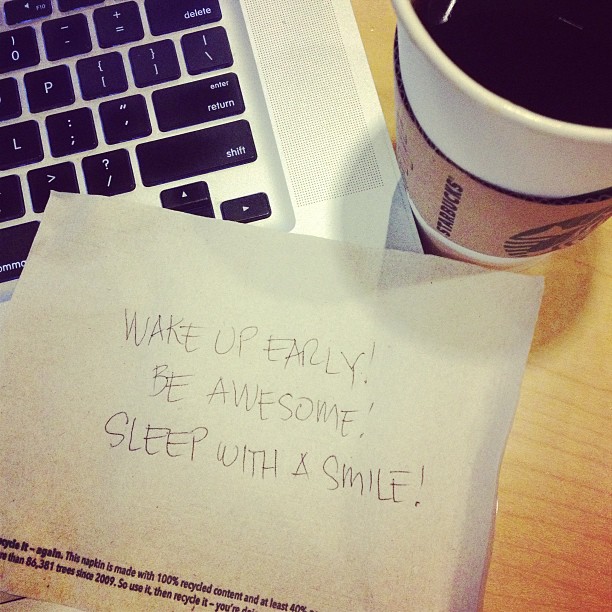 F10
delete
) 0
_ -
+ =
P
{ [
} ]
| \
L
: ;
" '
enter
return
>
? /
shift
STARBUCKS
WAKE UP EARLY!
BE AWESOME!
SLEEP WITH A SMILE!
it – again. This napkin is made with 100% recycled content and at least 40%
than 86,381 trees since 2009. So use it, then recycle it – you're